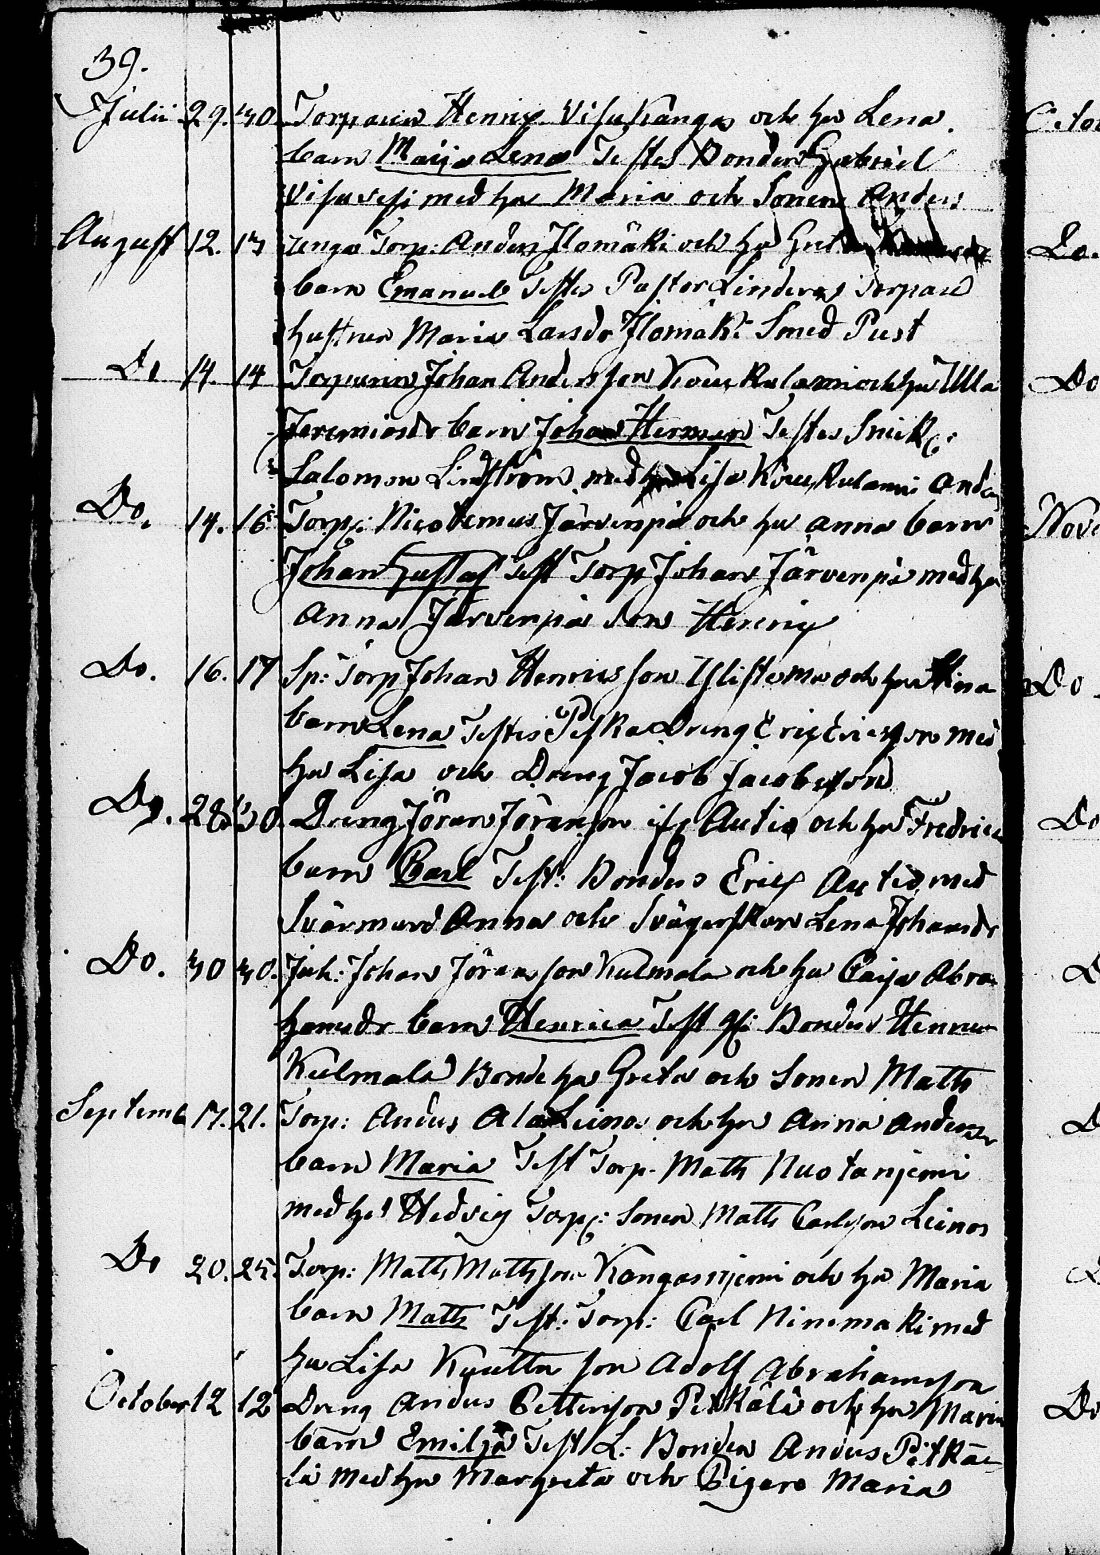 39.
Julii 29. 30. Torparen Henric Visukangas och hu Lena
barn Maija Lena Testes Bonden Gabriel
Visuvesi med hu Maria och Sonen Anders
August 12. 13 unga Torp: Anders Ilomäki och hu Greta
barn Emanuel Testes Pastor Lindera Torpare
hustrun Maria Larsdr Ilomäki Smed Pust
Do 14. 14 Torparen Johan Andersson Koueskulami och hu Ulla
Jeremiasdr barn Johan Herman Testes Snick:
Salomon Lindström med hu Lisa Anders
Do. 14. 16 Torp: Nicodemus Järvenpä och hu Anna barn
Johan Gustaf Test Torp Johan Järvenpä med hu
Anna Järvenpä Son Henric
Do. 16. 17 Sp: Torp Johan Henricsson och hu Stina
barn Lena Testes Dreng Eric Ericsson med
hu Lisa och Dreng Jacob Jacobsson
Do. 28 30. Dreng Jöran Jöransson Autio och hu Fredrica
barn Carl Test: Bonden Eric Autio med
Svärmord Anna och Lena Johansdr
Do. 30 30. Inh: Johan Jöransson Kulmala och hu Caisa Abra
hamsdr barn Henrica Test Bonden Henric
Kulmala Bonde hu Greta och Sonen Matts
Septemb 17. 21. Torp: Anders Ala Leinos och hu Anna Andersdr
barn Maria Test Torp. Matts Nuotanjemi
med hu Hedvig Torp: Sonen Matts Carlsson Leinos
Do 20. 25. Torp: Matts Mattsson Kangasnjemi och hu Maria
barn Matts Test: Torp: Carl Ninimäki med
hu Lisa son Adolf Abrahamsson
October 12 12 Dreng Anders Pettersson Pitkälä och hu Maria
barn Emilja Test L: Bonden Anders Pitkä-
lä med hu Margreta och Pigan Maria
Octo
Do.
Do
Nove
Do
Do
D
D
Do